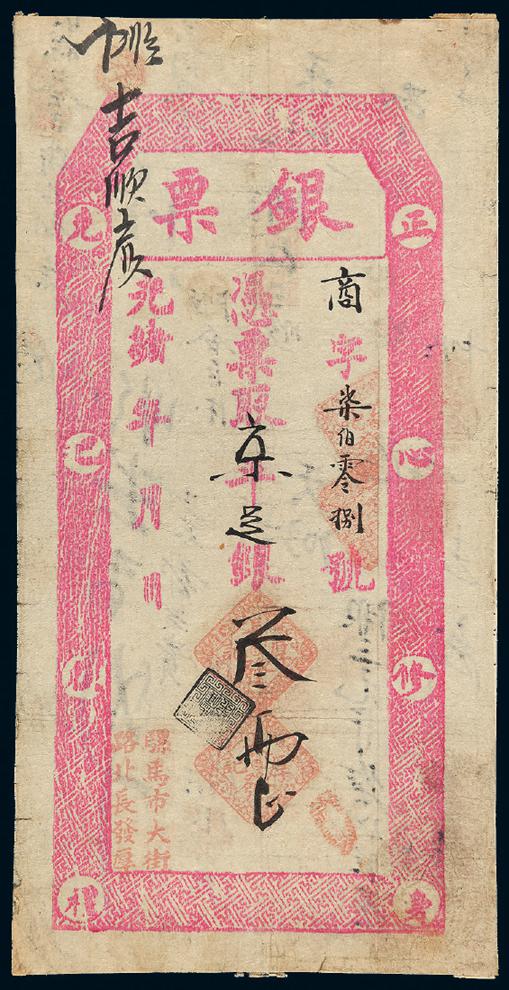 銀票
商字柒伯零捌號
憑票取京平足銀叁兩正
光緒 年 月 日
吉順
騾馬市大街
路北長發厚
正心修身
克己復禮